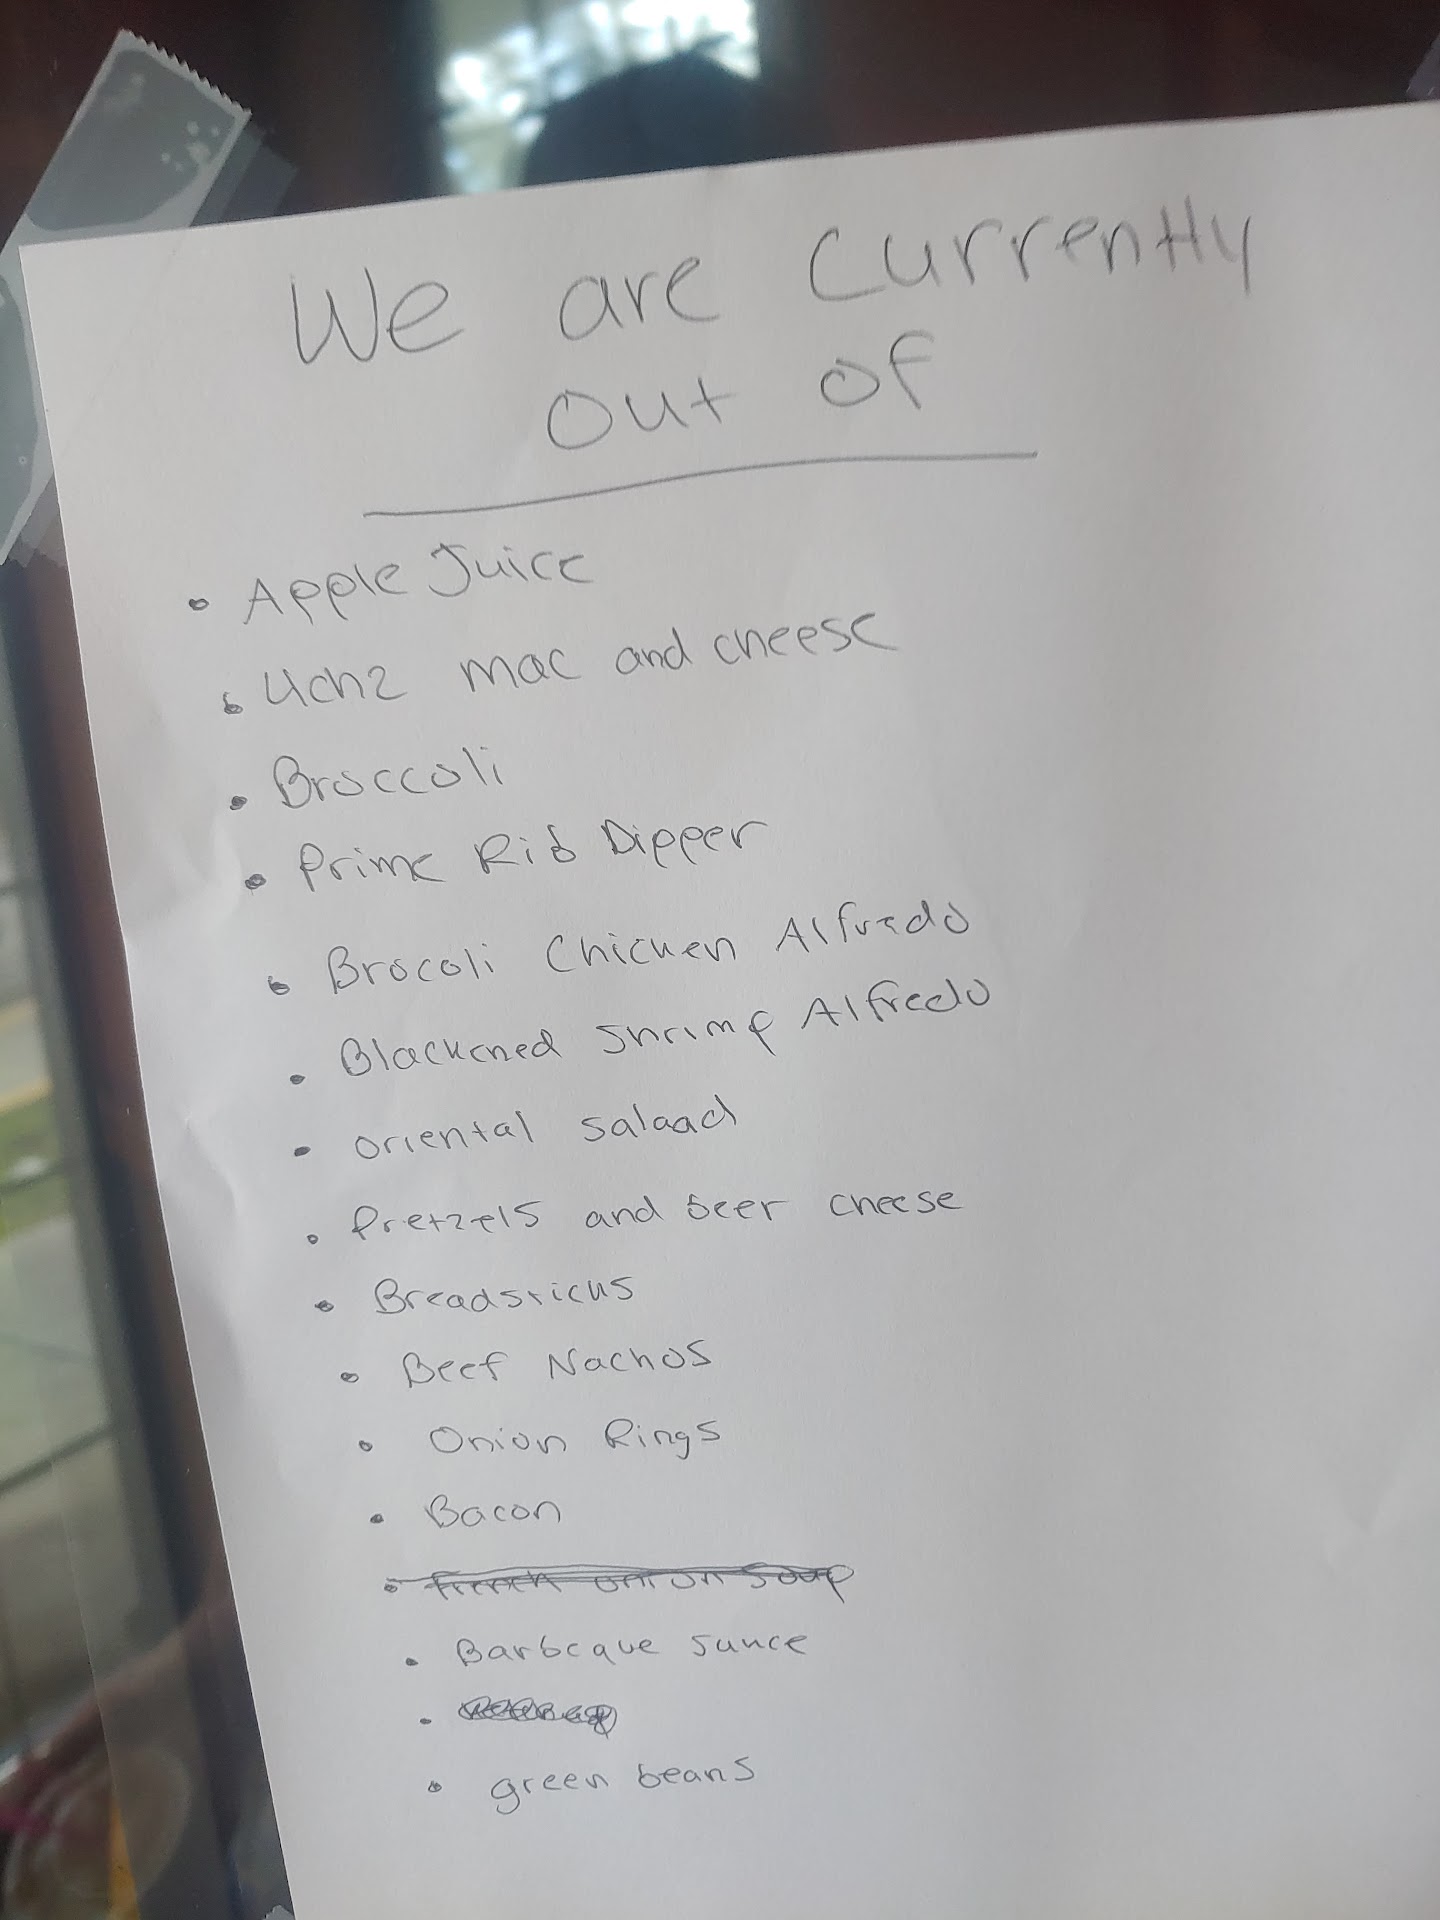 We are Currently
out of
• Apple Juice
• 4ch2 mac and cheese
• Broccoli
• Prime Rib Dipper
• Brocoli Chicken Alfredo
• Blackened Shrimp Alfredo
• oriental salaad
• Pretzels and beer cheese
• Breadsticks
• Beef Nachos
• Onion Rings
• Bacon
• french onion Soup
• Barbeque sauce
•
• green beans